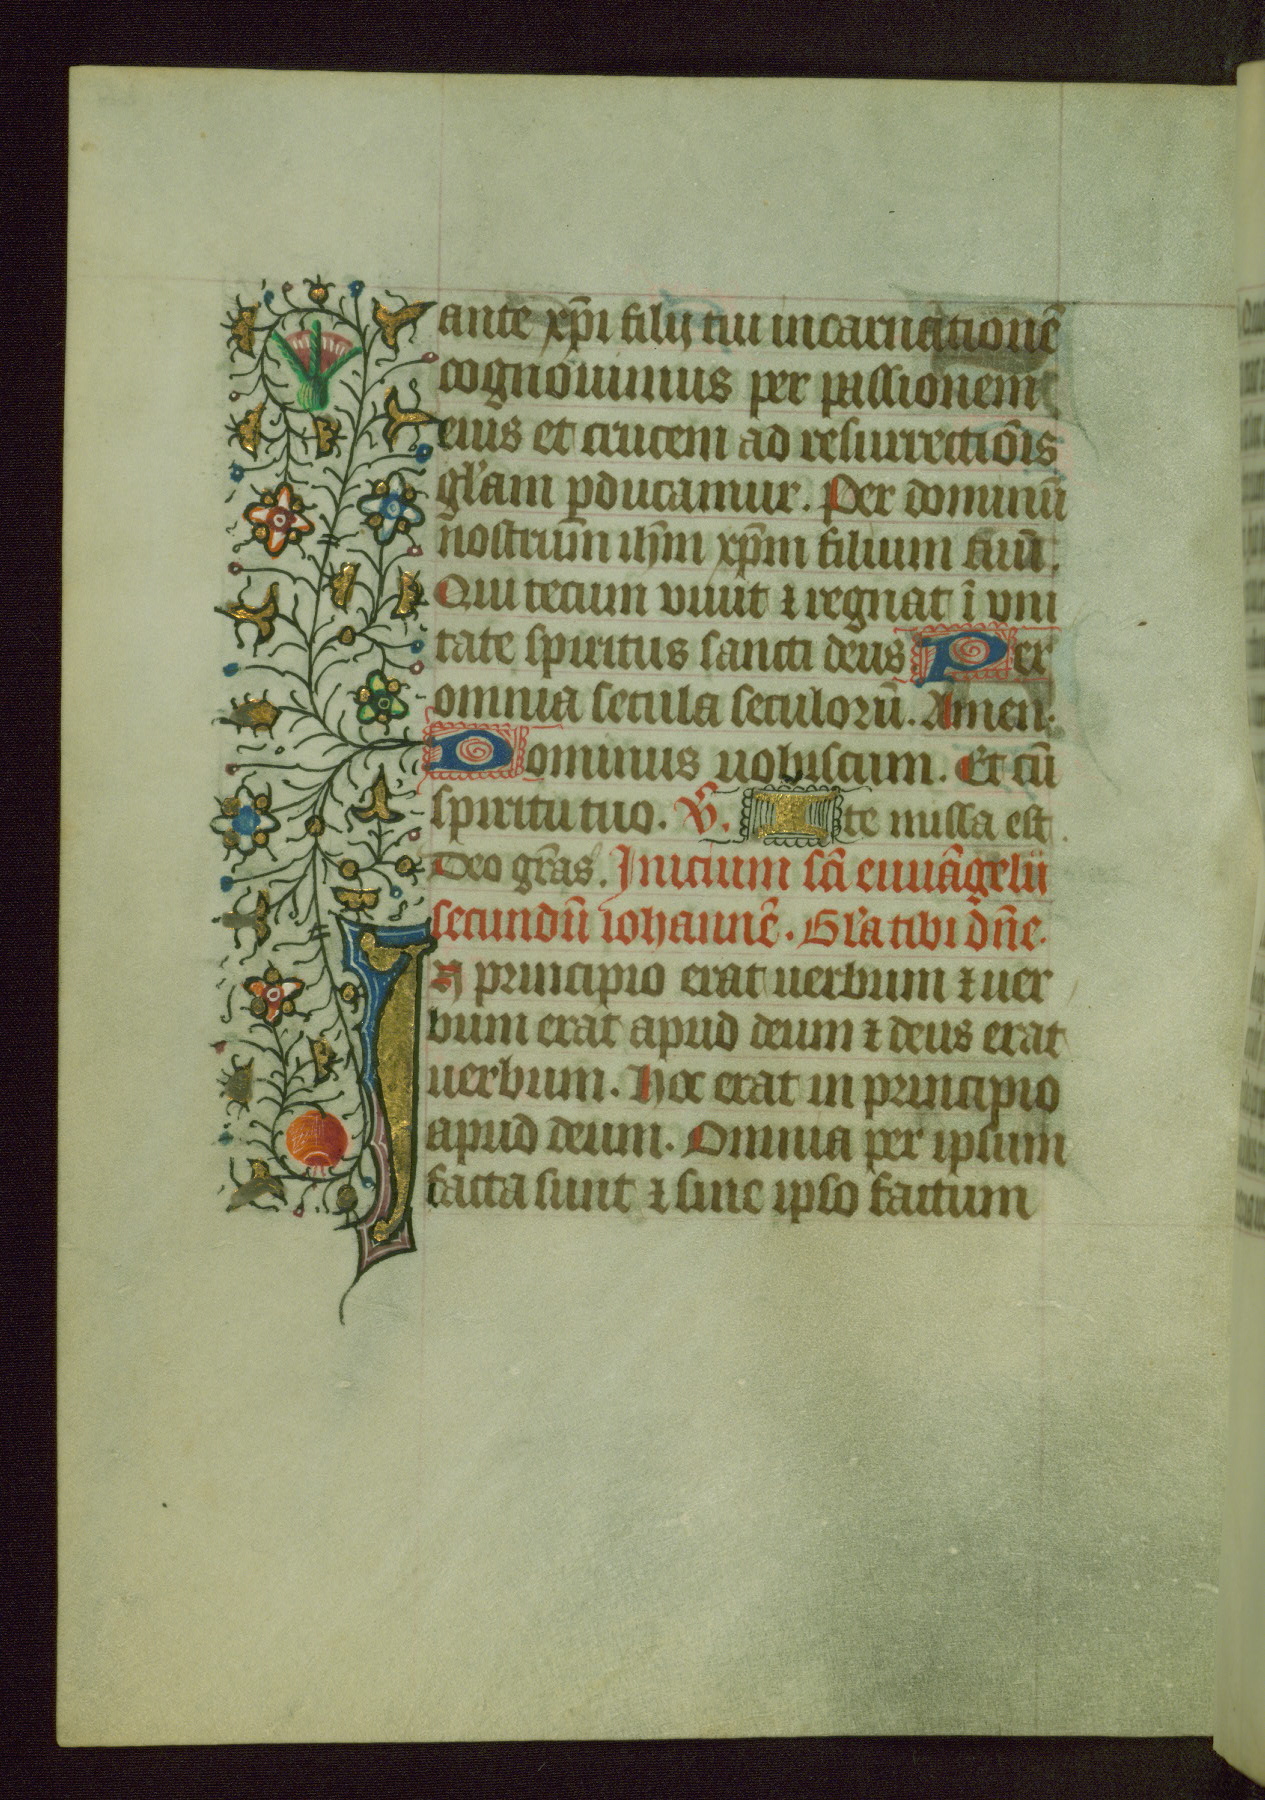 ante xp̄i filij tui incarnationē
cognouimus per passionem
eius et crucem ad resurrectiōis
gl'am ꝓducamur. Per dominū
nostrum ihm̄ xp̄m filium tuū.
Qui tecum viuit ⁊ regnat ī vni
tate spiritus sancti deus Per
omnia secula seculorū. Amen.
Dominus uobiscum. Et cū
spiritu tuo. V̄. Ite missa est.
Deo gr̄as. Inicium sc̄i euuāgelii
secundū iohannē. Gl'a tibi dn̄e.
In principio erat uerbum ⁊ uer
bum erat apud deum ⁊ deus erat
uerbum. Hoc erat in principio
apud deum. Omnia per ipsum
facta sunt ⁊ sine ipso factum